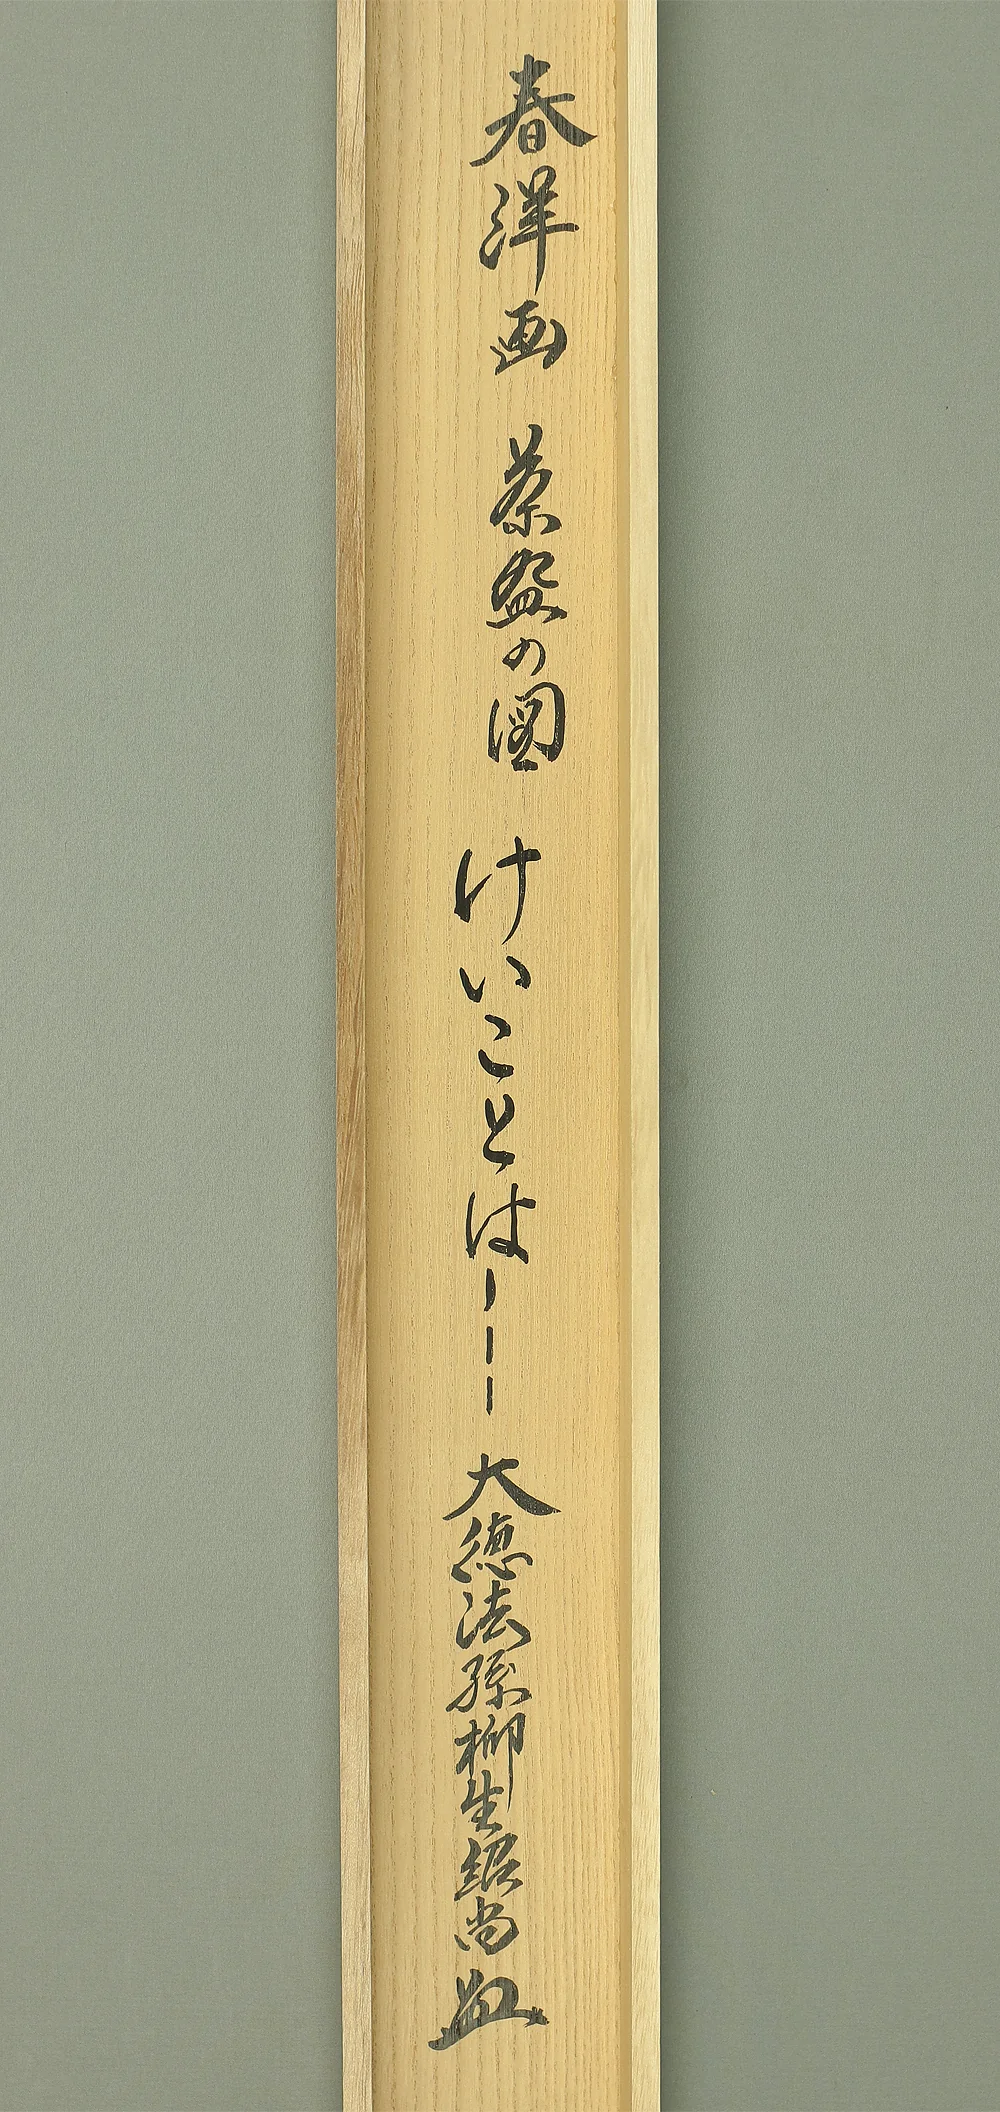 春洋画 茶盌の図 けいことは――― 大徳法孫柳生紹尚